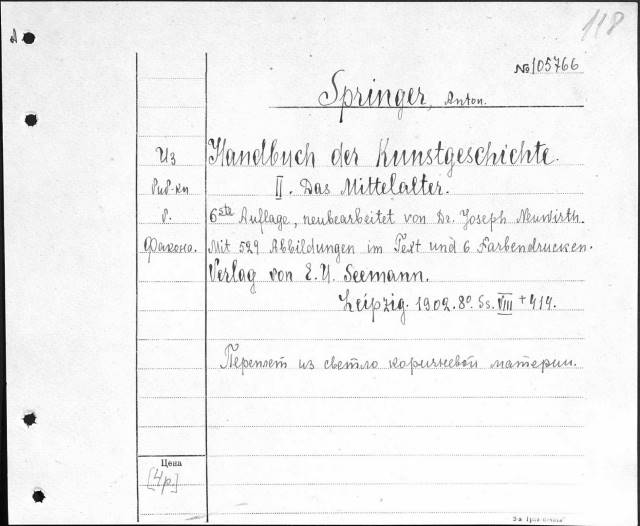 118
№ 105766
Springer, Anton.
Из Handbuch der Kunstgeschichte.
II. Das Mittelalter.
6ste Auflage, neubearbeitet von Dr. Joseph Neuwirth.
Mit 529 Abbildungen im Text und 6 Farbendrucken.
Verlag von E. A. Seemann.
Leipzig. 1902. 8º. Ss. VIII + 414.
Переплет из светло коричневой материи.
Цена
[4р.]